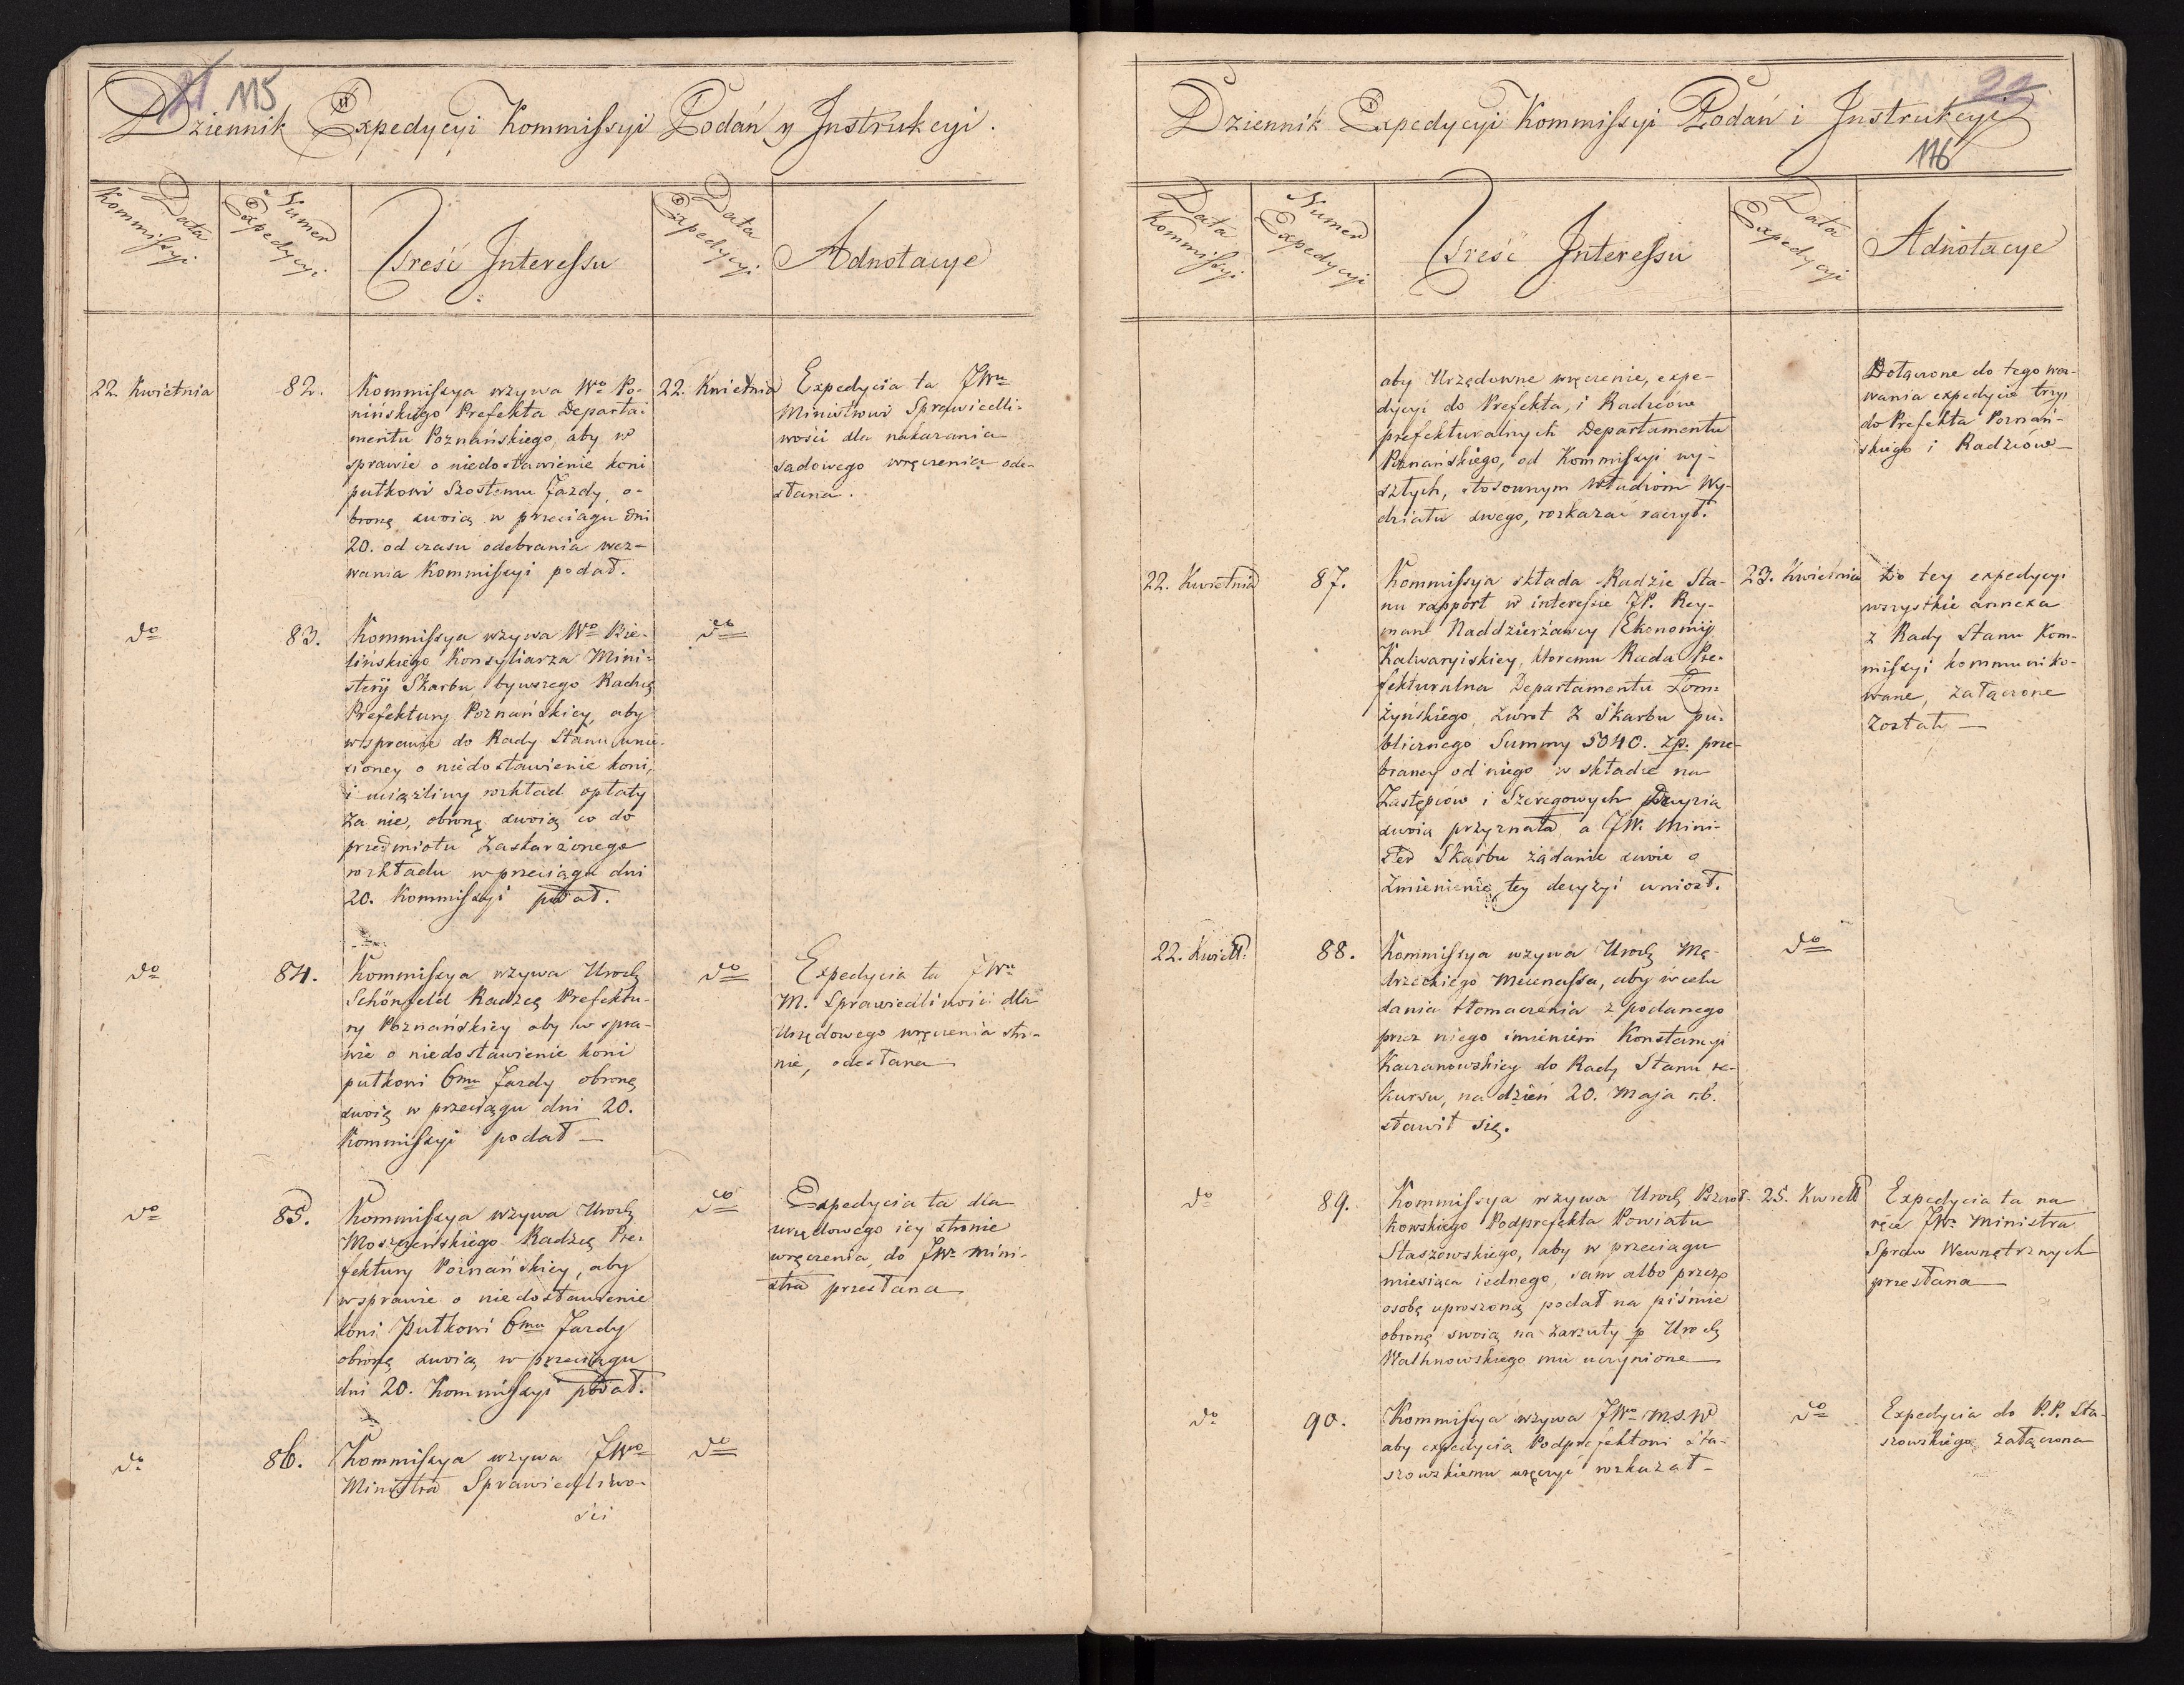 21 115
Dziennik Expedycyi Kommissyi Podań y Instrukcyi.
Data Kommissyi.
Numer Expedycyi
Treść Interessu
Data Expedycyi
Adnotacye
22. Kwietnia
82.
Kommissya wzywa Wo Po-
nińskiego Prefekta Departa-
mentu Poznańskiego, aby w
sprawie o niedostawienie koni
pułkowi Szostemu Jazdy, o-
bronę swoią w przeciągu dni
20. od czasu odebrania wez-
wania Kommissyi podał.
22. Kwietnia
Expedycia ta JWu
Ministrowi Sprawiedli-
wości dla nakazania
sądowego wręczenia ode-
słana.
do
83.
Kommissya wzywa Wo Bie-
lińskiego Konsyliarza Mini-
steryi Skarbu, bywszego Radcę
Prefektury Poznańskiey, aby
w sprawie do Rady Stanu wnie-
sioney o niedostawienie koni,
i uciążliwy rozkład opłaty
za nie, obronę swoią co do
przedmiotu zaskarżonego
rozkładu w przeciągu dni
20. Kommissyi podał.
do
do
84.
Kommissya wzywa Urodz
Schönfeld Radzcę Prefektu-
ry Poznańskiey aby w spra-
wie o niedostawienie koni
pułkowi 6mu Jazdy obronę
swoią w przeciągu dni 20.
Kommissyi podał —
do
Expedycia ta JWu
M. Sprawiedliwości dla
Urzędowego wręczenia stro-
nie, odesłana
do
85.
Kommissya wzywa Urodz
Moszczeńskiego Radzcę Pre-
fektury Poznańskiey, aby
w sprawie o niedostawienie
koni Pułkowi 6mu Jazdy
obronę swoią w przeciągu
dni 20. Kommissyi podał.
do
Expedycia ta dla
urzędowego iey stronie
wręczenia, do JWo Mini-
stra przesłana
do
86.
Kommissya wzywa JWo
Ministra Sprawiedliwo-
ści
do
22
Dziennik Expedycyi Kommissyi Podań i Instrukcyi
116
Data Kommissyi
Numer Expedycyi
Treść Interessu
Data Expedycyi
Adnotacye
aby Urzędowne wręczenie, expe-
dycyi do Prefekta, i Radzców
prefekturalnych Departamentu
Poznańskiego, od Kommissyi wy-
szłych, stosownym Władzom Wy-
działu swego, rozkazać raczył.
Dołączone do tego wez-
wania expedycie trzy
do Prefekta Poznań-
skiego i Radzców —
22. Kwietnia
87.
Kommissya składa Radzie Sta-
nu rapport w interessie JP. Rey-
man Naddzierżawcy Ekonomij
Kalwaryiskiey, ktoremu Rada Pre-
fekturalna Departamentu Łom-
żyńskiego, zwrot z Skarbu pu-
blicznego Summy 5040. zp. prze-
braney od niego w składce na
Zastępców i Szeregowych Decyzią
swoią przyznała, a JW. Mini-
ster Skarbu żądanie swoie o
zmienienie tey decyzyi wniosł.
23. Kwietnia
Do tey expedycyi
wszystkie annexa
z Rady Stanu Kom-
missyi kommuniko-
wane, załączone
zostały —
22. Kwiett.
88.
Kommissya wzywa Urodz Mę-
drzeckiego Mecenassa, aby w celu
dania tłomaczenia z podanego
przez niego imieniem Konstancyi
Kaczanowskiey do Rady Stanu re-
kursu, na dzień 20. Maja r.b.
stawił się.
do
do
89.
kowskiego Podprefekta Powiatu
Staszowskiego, aby w przeciągu
miesiąca iednego, sam albo przez
osobę uproszoną podał na piśmie
obronę swoią na zarzuty p Urodz
Walhnowskiego mu uczynione —
25. Kwiett
Expedycia ta na
ręce JWo Ministra
Spraw Wewnętrznych
przesłana —
do
90.
Kommissya wzywa JWo M.S.W
aby expedycią Podprefektowi Sta-
szowskiemu wręczyć rozkazał —
do
Expedycia do P.P. Sta-
szowskiego, załączona